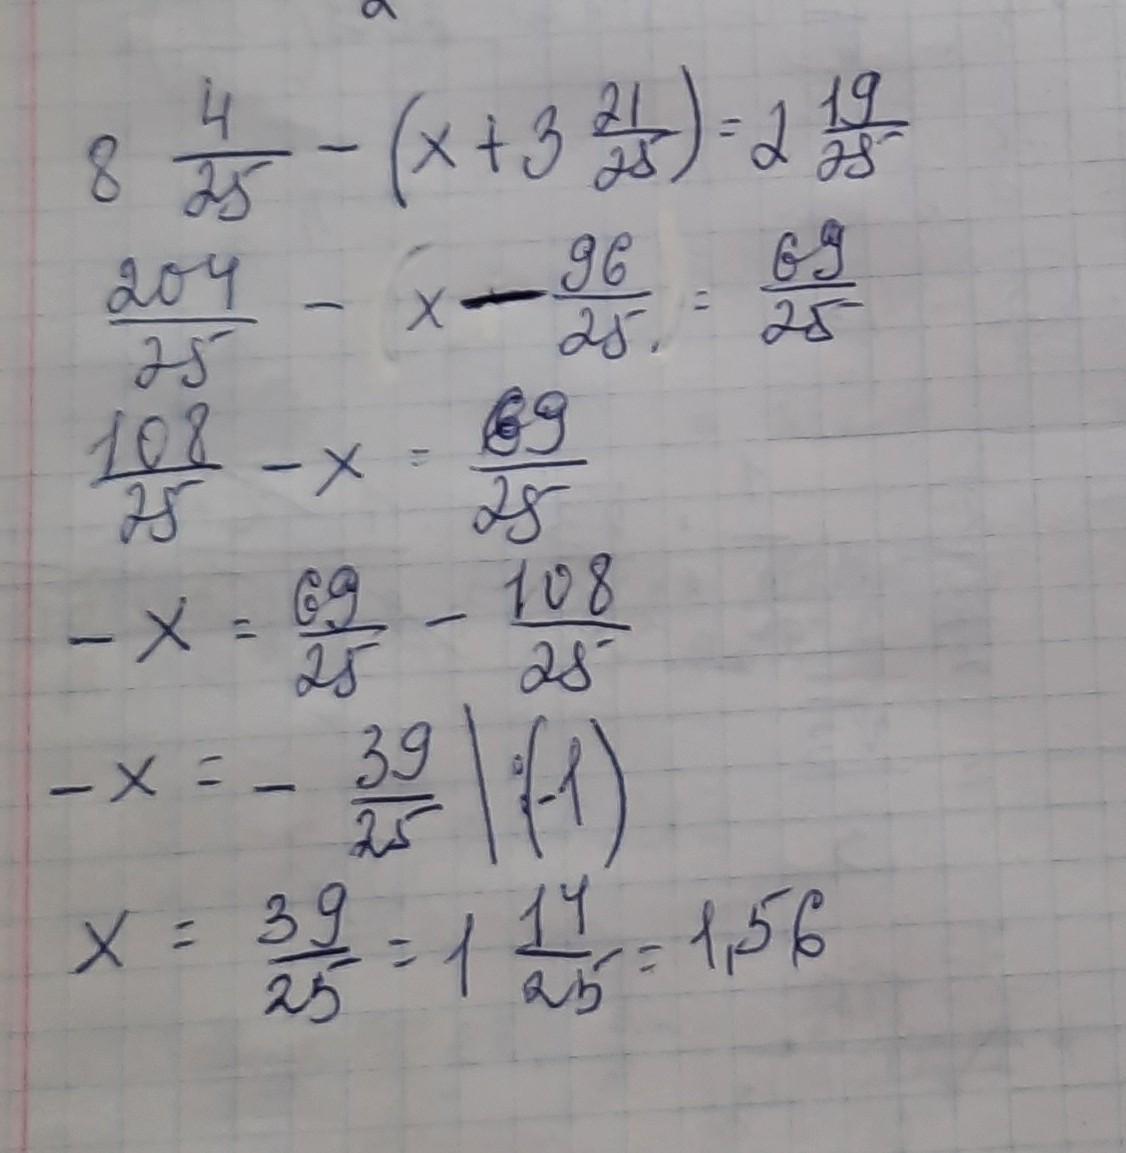 8 4/25 - (x + 3 21/25) = 2 19/25
204/25 - x - 96/25 = 69/25
108/25 - x = 69/25
- x = 69/25 - 108/25
- x = - 39/25 | :(-1)
x = 39/25 = 1 14/25 = 1,56